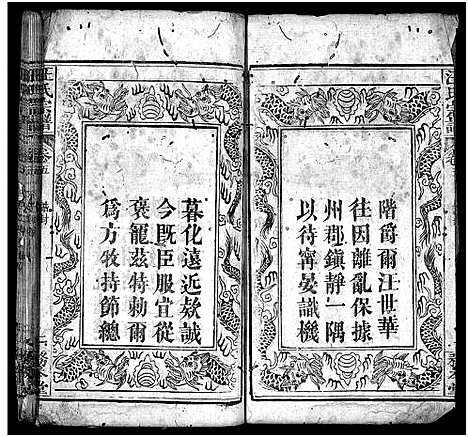 階爵爾汪世華
往因離亂保據
州郡鎮靜一隅
以待寧晏識機
慕化遠近欸誠
今既臣服宜從
襃寵茲特勅爾
爲方牧持節總
汪氏宗譜